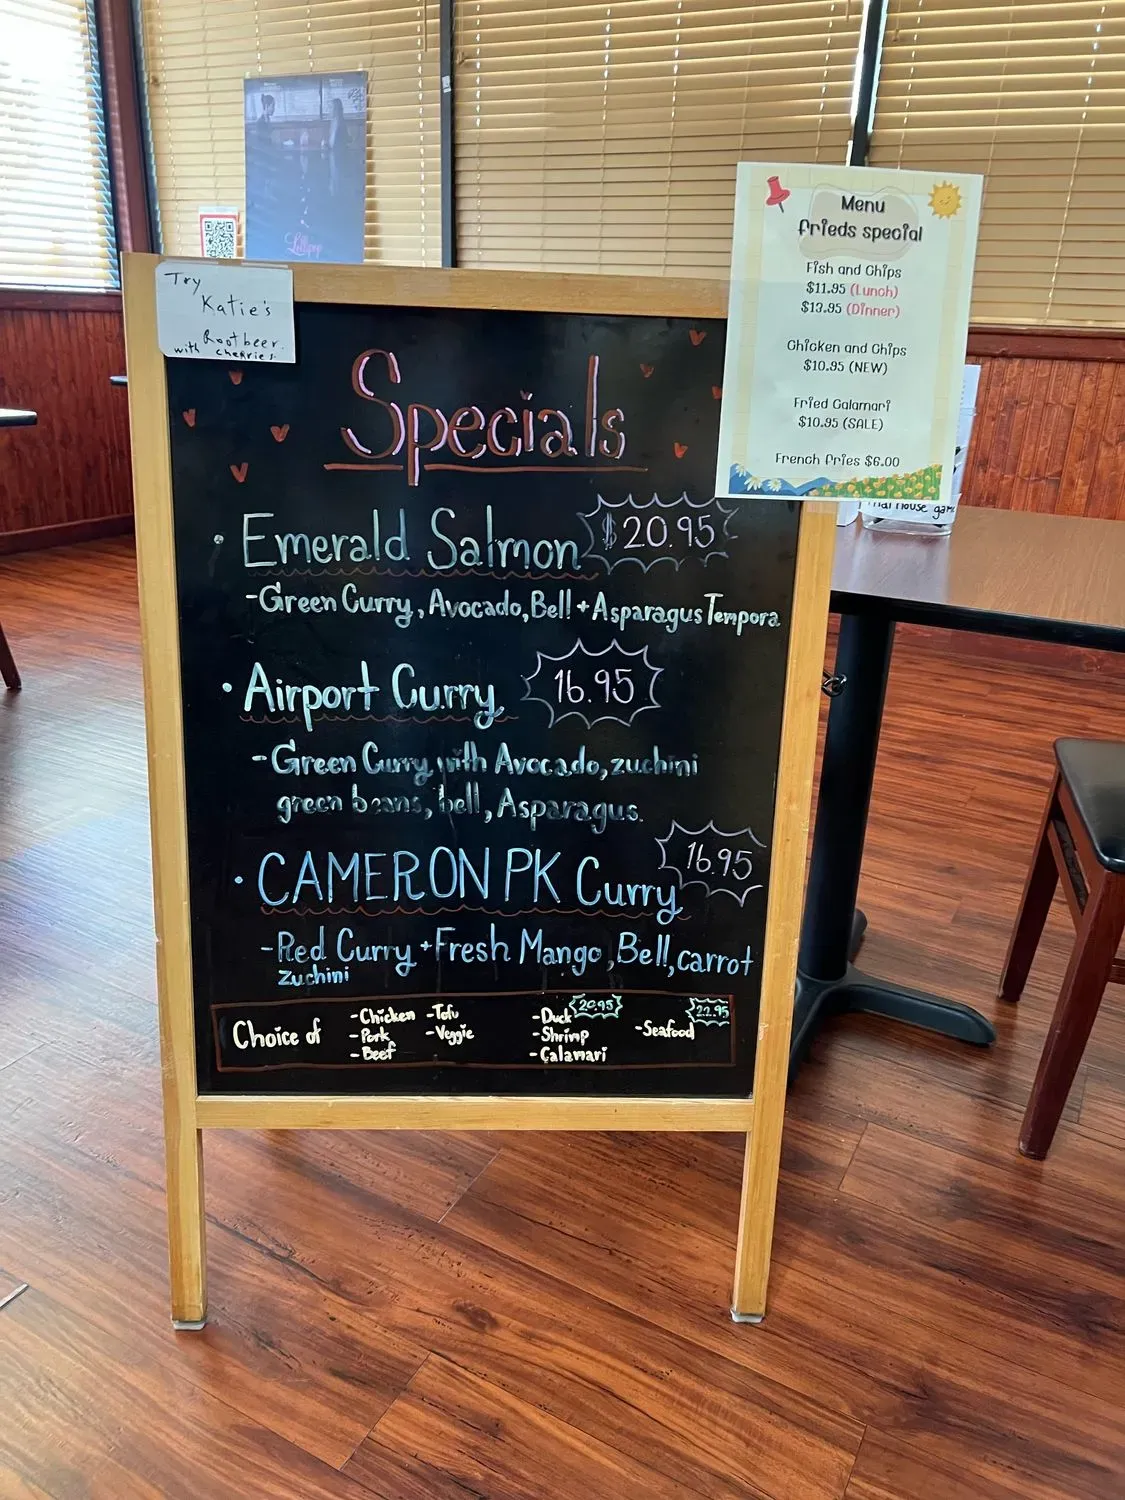 Lollipop
Try
Katie's
Rootbeer.
with cherries
Menu
frieds special
Fish and Chips
$11.95 (Lunch)
$13.95 (Dinner)
Chicken and Chips
$10.95 (NEW)
Fried Calamari
$10.95 (SALE)
French fries $6.00
Specials
• Emerald Salmon $20.95
-Green Curry, Avocado, Bell + Asparagus Tempora
• Airport Curry 16.95
-Green Curry with Avocado, zuchini
green beans, bell, Asparagus.
• CAMERON PK Curry 16.95
-Red Curry + Fresh Mango, Bell, carrot
zuchini
Choice of
-Chicken -Tofu
-Pork -Veggie
-Beef
-Duck 20.95
-Shrimp
-Calamari
-Seafood 22.95
house